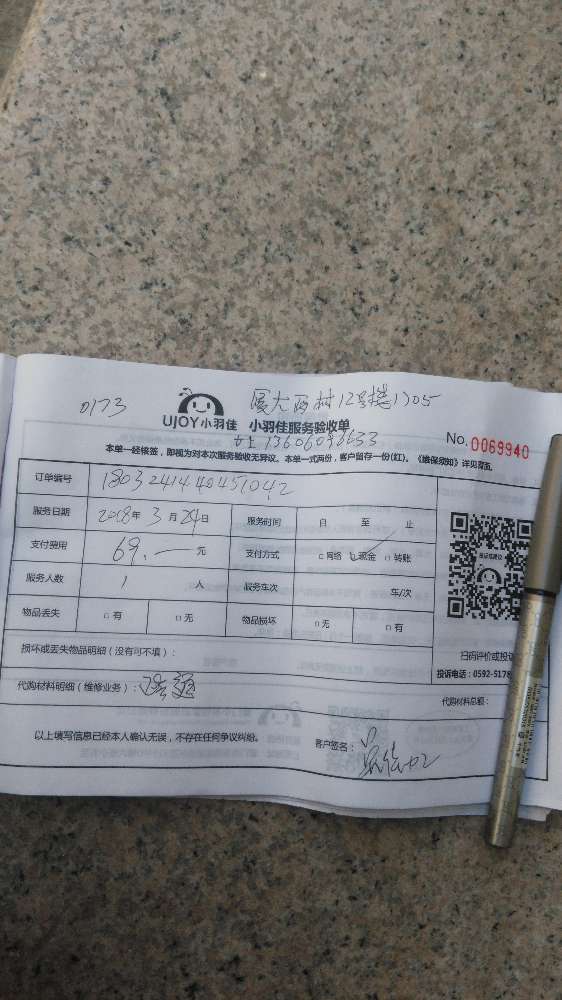 0173
厦大西村12号楼1705
UJOY小羽佳 小羽佳服务验收单
女士 13606098633
No. 0069940
本单一经接签，即视为对本次服务验收无异议。本单一式两份，客户留存一份(红)。《维保须知》详见背面
订单编号 1803241440451042
服务日期 2018年3月24日 服务时间 自 至 止
支付费用 69.— 元 支付方式 □网络 □现金 □转账
服务人数 1 人 服务车次 车/次
物品丢失 □有 □无 物品损坏 □无 □有
扫码评价或投诉
投诉电话：0592-5178
损坏或丢失物品明细（没有可不填）：
代购材料明细（维修业务）： 代购材料总额：
以上填写信息已经本人确认无误，不存在任何争议纠纷。 客户签名：